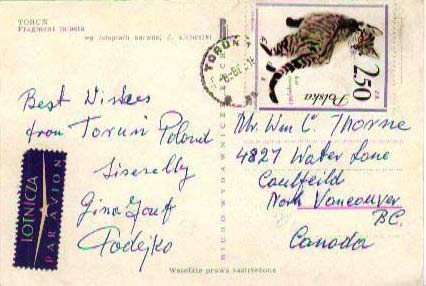 TORUŃ
Fragment miasta
TORUŃ
ZŁ
2.50
Polska
Best Wishes
from Toruń Poland
Siserelly
Gina Josef
Fodejko
LOTNICZA
PAR AVION
BIURO WYDAWNICZE
Mr. Wm C. Thorne
4827 Water Lane
Caulfeild
North Vancouver
BC.
Canada
Wszelkie prawa zastrzeżone